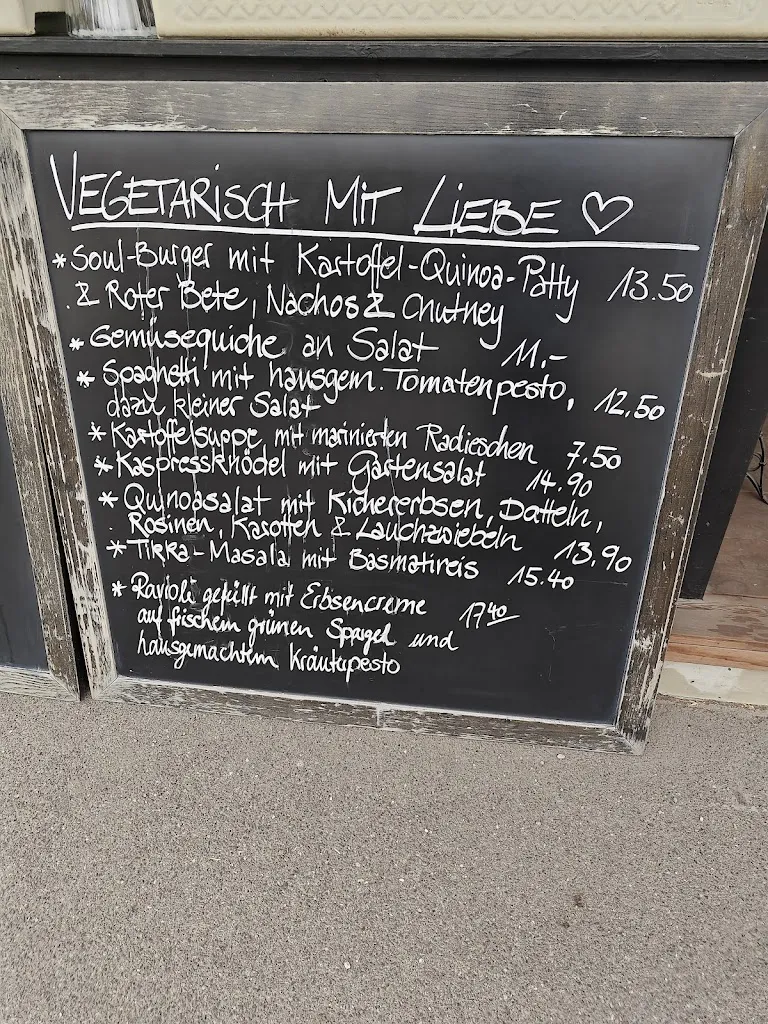 VEGETARISCH MIT LIEBE ♡
* Soul-Burger mit Kartoffel-Quinoa-Patty 13.50
& Roter Bete, Nachos & Chutney
* Gemüsequiche an Salat 11.-
* Spaghetti mit hausgem. Tomatenpesto, 12.50
dazu kleiner Salat
* Kartoffelsuppe mit marinierten Radieschen 7.50
* Kaspressknödel mit Gartensalat 14.90
* Quinoasalat mit Kichererbsen, Datteln,
Rosinen, Karotten & Lauchzwiebeln 13.90
* Tikka-Masala mit Basmatireis 15.40
* Ravioli gefüllt mit Erbsencreme 17.40
auf frischem grünen Spargel und
hausgemachtem Kräuterpesto